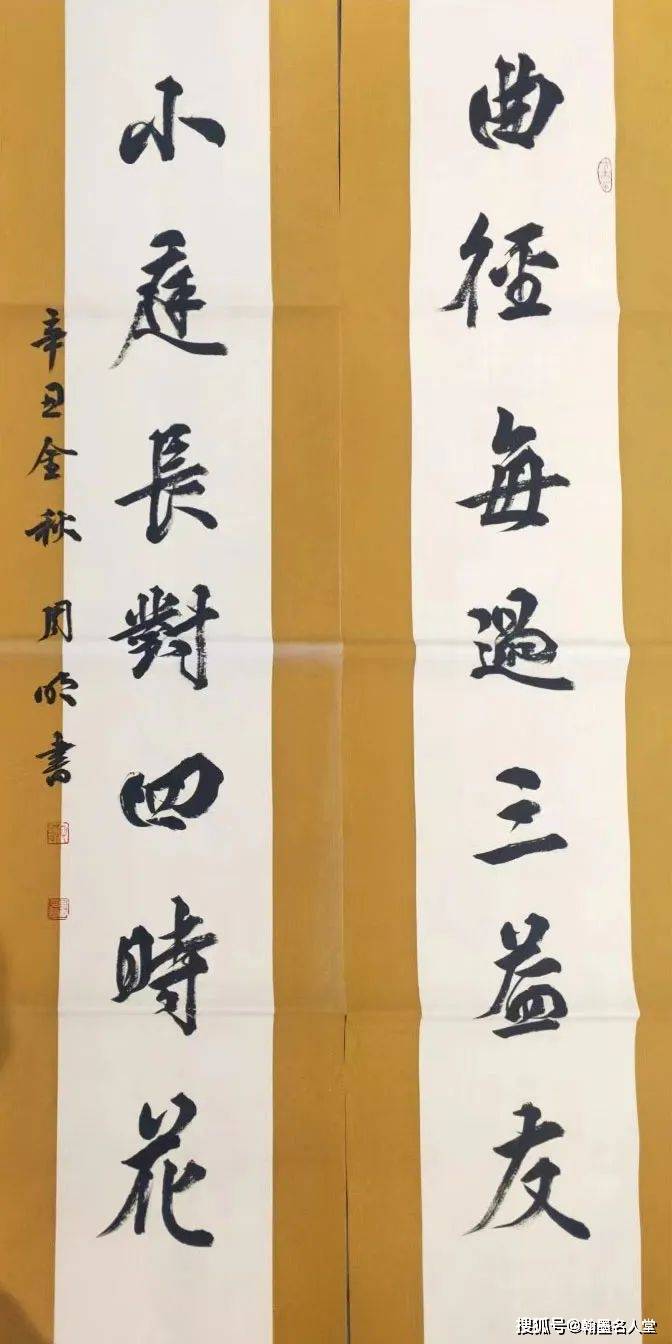 曲徑每過三益友
小庭長對四時花
辛丑金秋 周明书
搜狐号@翰墨名人堂